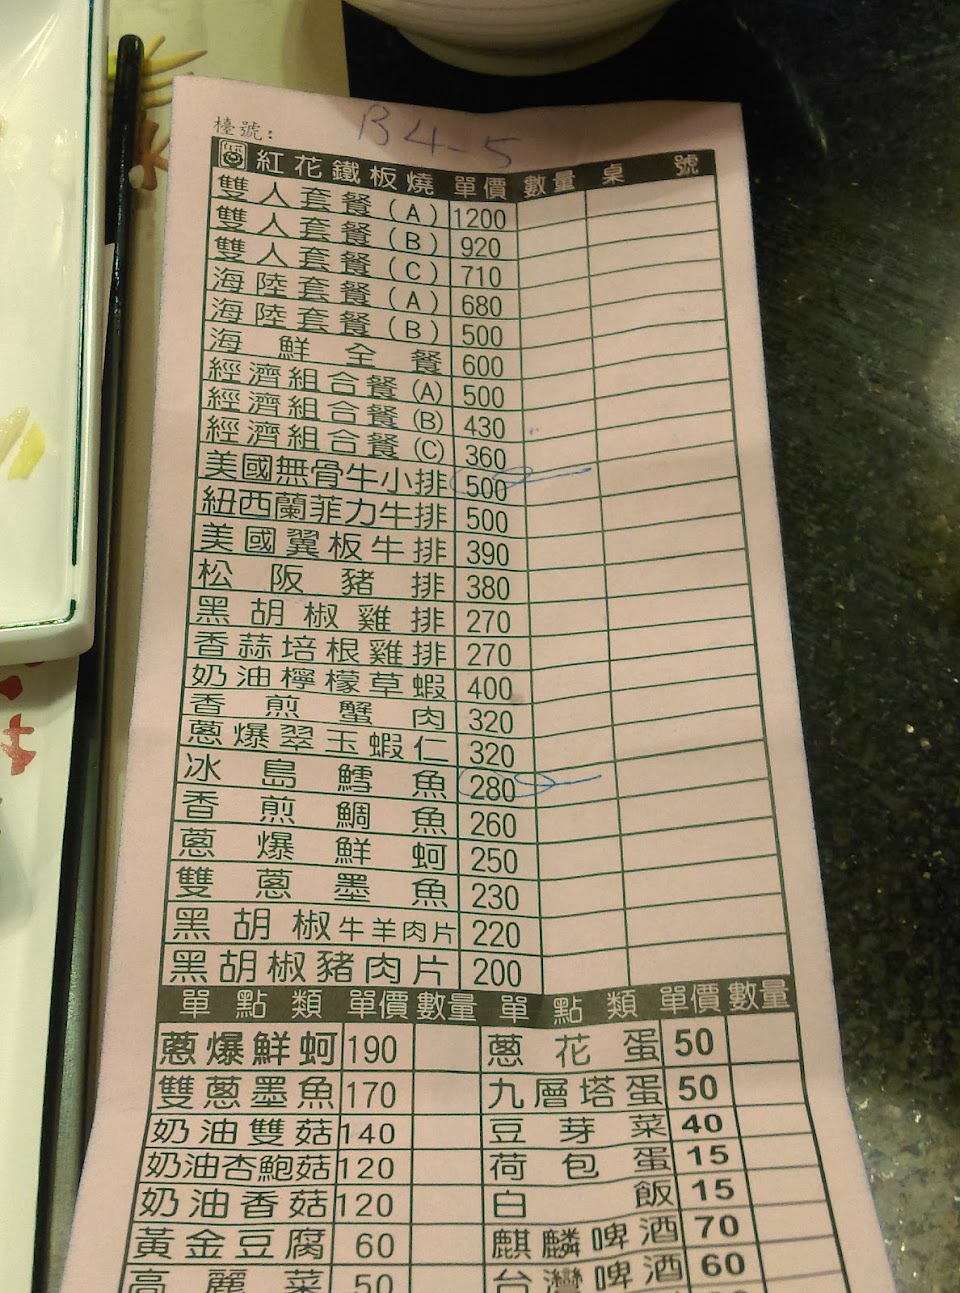 檯號: B4-5
紅花鐵板燒 單價 數量 桌號
雙人套餐(A) 1200
雙人套餐(B) 920
雙人套餐(C) 710
海陸套餐(A) 680
海陸套餐(B) 500
海鮮全餐 600
經濟組合餐(A) 500
經濟組合餐(B) 430
經濟組合餐(C) 360
美國無骨牛小排 500
紐西蘭菲力牛排 500
美國翼板牛排 390
松阪豬排 380
黑胡椒雞排 270
香蒜培根雞排 270
奶油檸檬草蝦 400
香煎蟹肉 320
蔥爆翠玉蝦仁 320
冰島鱈魚 280
香煎鯛魚 260
蔥爆鮮蚵 250
雙蔥墨魚 230
黑胡椒牛羊肉片 220
黑胡椒豬肉片 200
單點類 單價 數量 單點類 單價 數量
蔥爆鮮蚵 190 蔥花蛋 50
雙蔥墨魚 170 九層塔蛋 50
奶油雙菇 140 豆芽菜 40
奶油杏鮑菇 120 荷包蛋 15
奶油香菇 120 白飯 15
黃金豆腐 60 麒麟啤酒 70
高麗菜 50 台灣啤酒 60